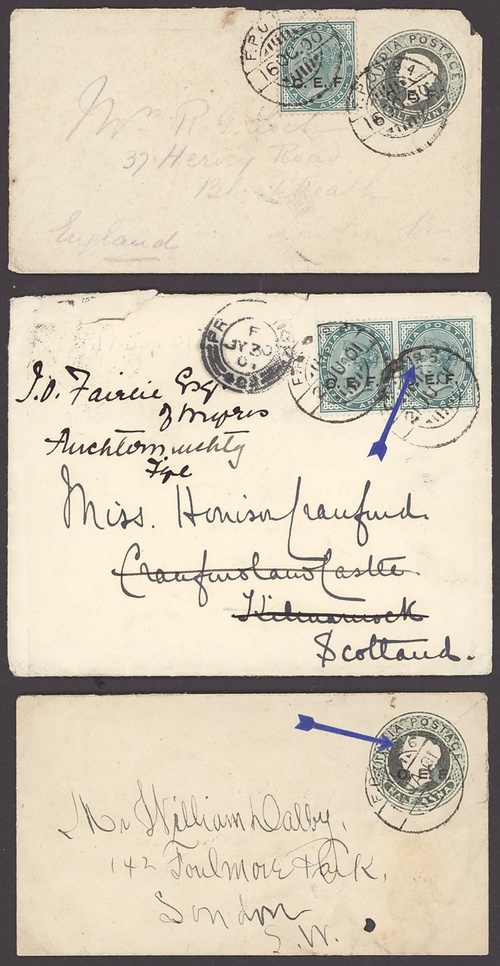 F.P.O.
16 DE.00
C. E. F.
INDIA POSTAGE
C. E. F.
HALF ANNA
Mrs R. G.
37 Hervey Road
Blackheath
England
F
JY 30
01
C. E. F.
C. E. F.
J. O. Fairlie Esq
of Myres
Auchtermuchty
Fife
Miss. Honison Craufurd.
Craufurdland Castle
Kilmarnock
Scotland.
INDIA POSTAGE
C. E. F.
HALF ANNA
Mr William Dalby,
142 Park,
London
S.W.